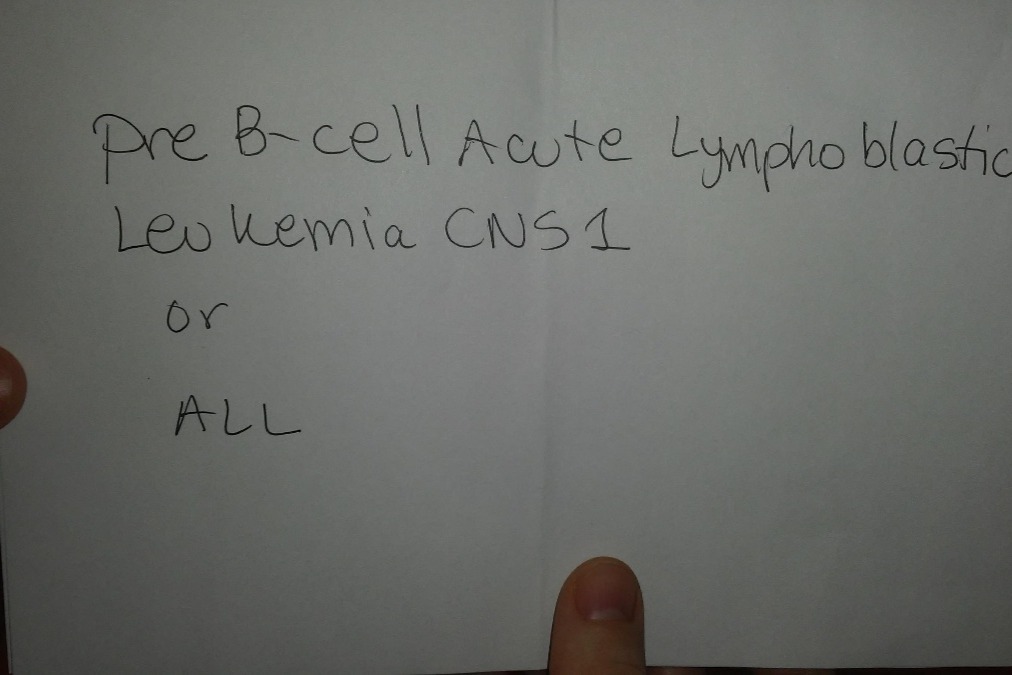 Pre B-cell Acute Lymphoblastic
Leukemia CNS1
or
ALL